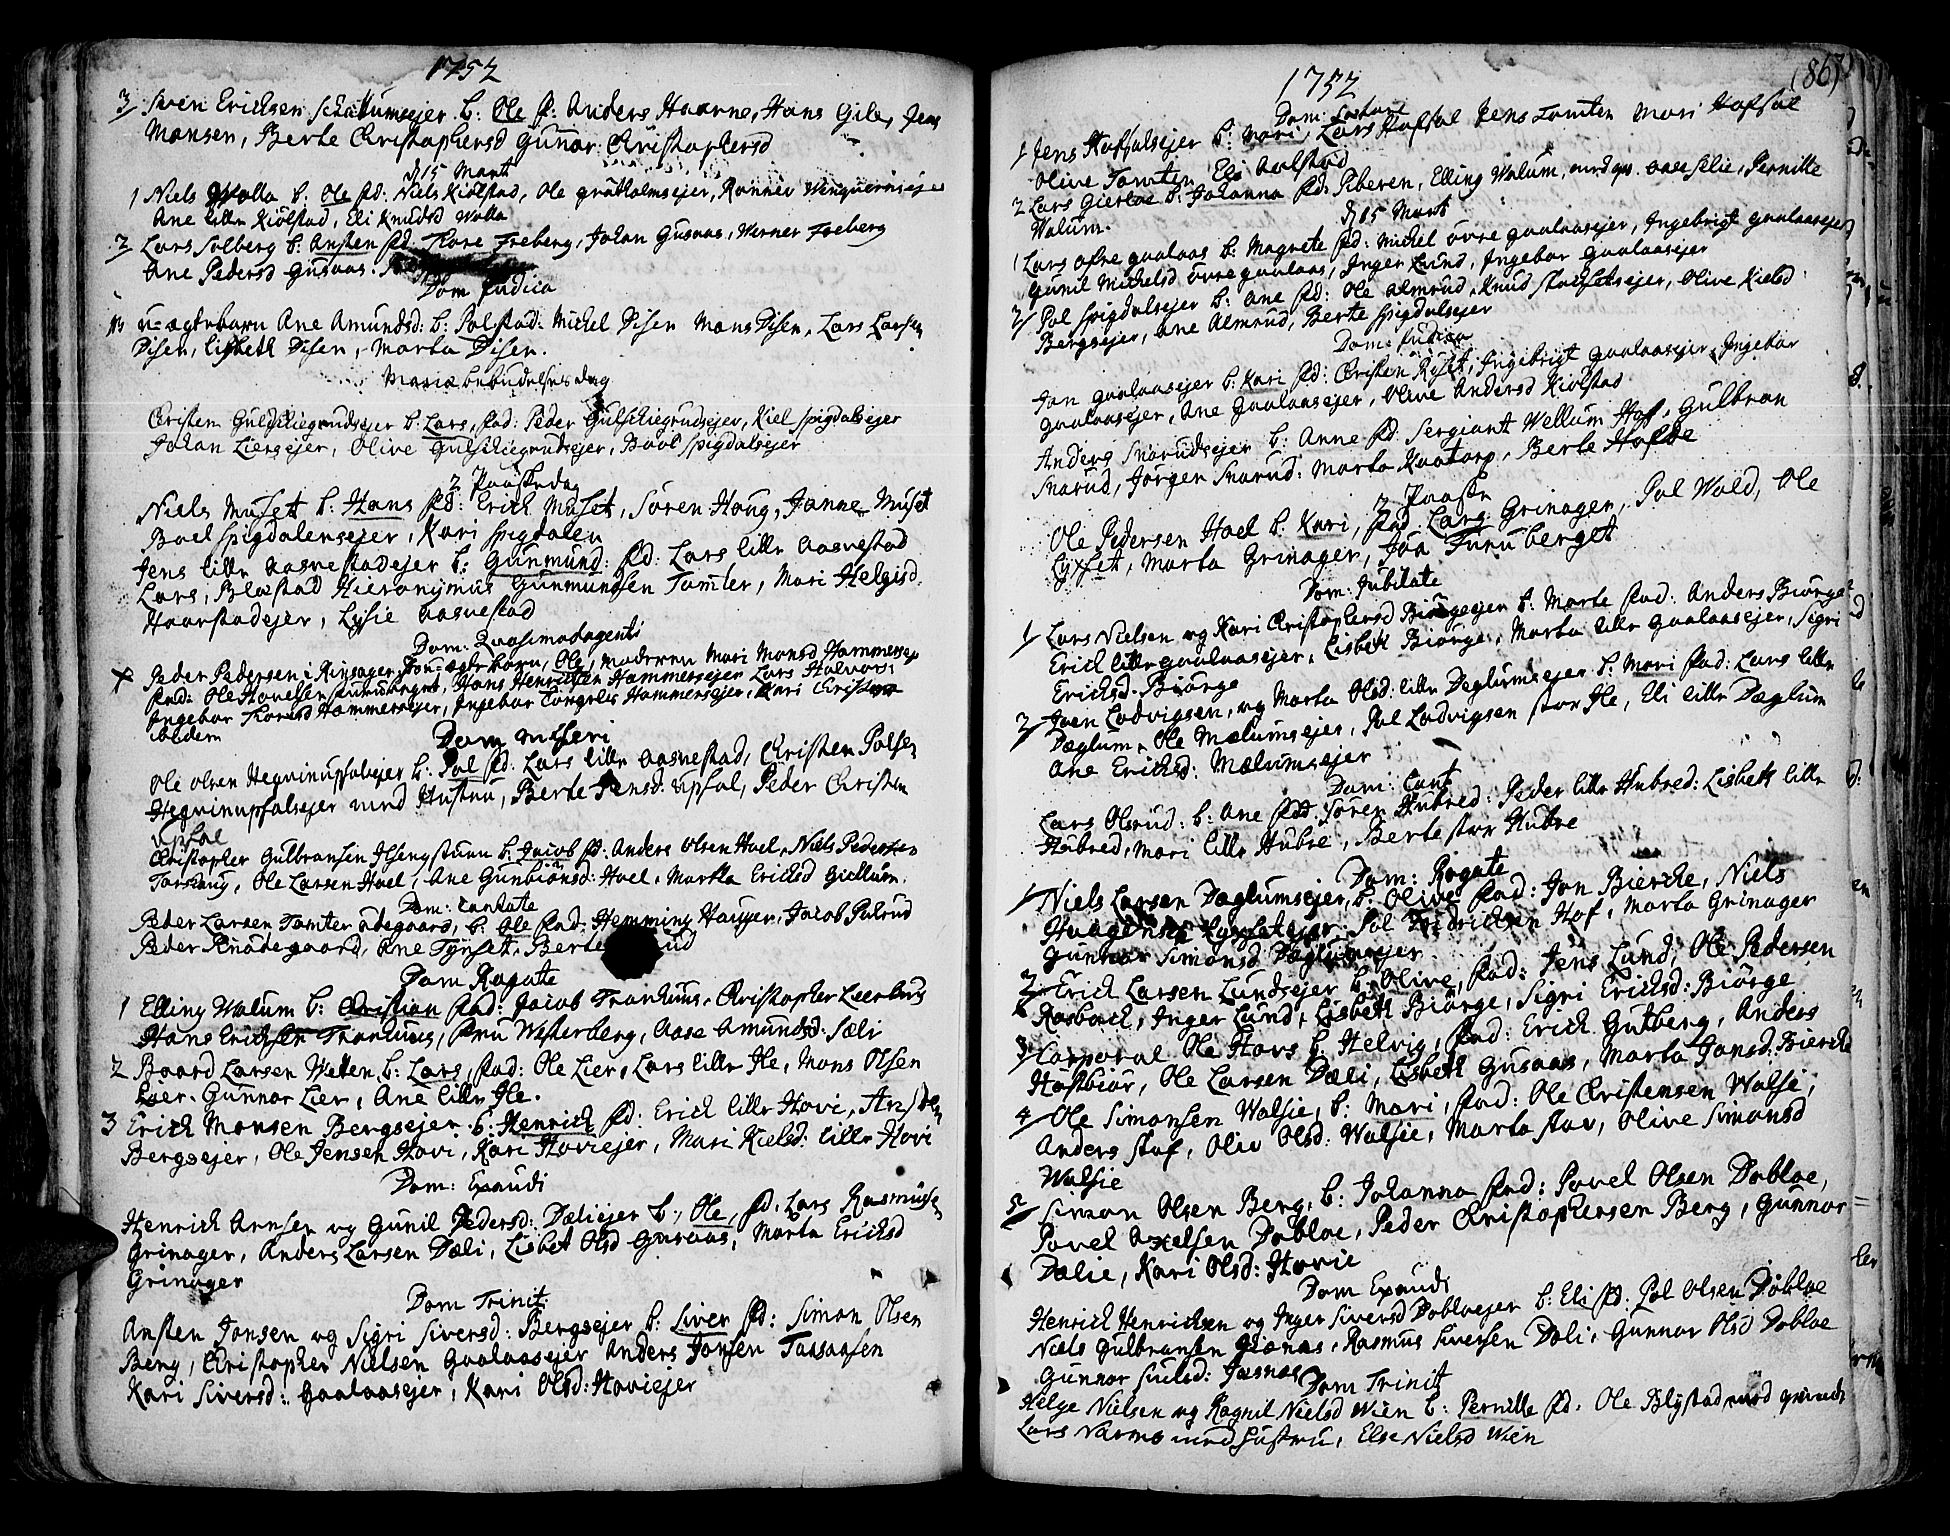 1752
3/ Swen Erichsen Schattumsejer b: Ole fd: Anders Haarne, Hans Gile, Jens
Monsen, Berte Christophersd Gunor Christophersd
d 15 Marti
1 Niels Wolla b: Ole fd: Niels Kiølstad, Ole gratholmsejer, Ronnev
Ane lille Kiølstad, Eli Knudsd Wolla
2/ Lars Solberg b: Ansten fd. Thore Freberg, Johan Gusaas, Werner Freberg
Ane Pedersd Gusaas.
Dom Judica
u-ægte barn Ane Amundsd: b: Pol fad: Michel Disen Mons Disen, Lars Larsen
Disen, Lisbeth Disen, Marta Disen.
Mariæ bebudelses dag
Christen Gulschiegrudsejer b: Lars, fad: Peder Gulschiegrudsejer, Kiel Spigdalsejer
Johan Liersejer, Olive Gulschiegrudsejer, Boel Spigdalsejer
2 Paaskedag
Niels Muset b: Hans fd: Erich Muset, Søren Houg, Janne Muset
Boel Spigdalensejer, Kari Spigdalen
Jens lille Aasvestadejer b: Gunmund: fd: Lars lille Aasvestad
Lars, Blæstad Hieronymus Gunmundsen Tomter, Mari Helgisd
Haarstadejer, Lysie Aasvestad
Dom: Quasimodogeniti
Peder Pedersen i Ringsager u-ægte barn, Ole, moderen Mari Monsd Hammersejer
fad: Ole Hovelsen, Hans Henrichsen Hammersejer Lars Halvors:
Ingebor Thoresd Hammersejer, Ingebor Hammersejer, Kari Christens
ibidem
Dom miseri
Ole Olsen Hegvinupsalejer b: Pol fd: Lars lille Aasvestad, Christen Polsen
Hegvinupsalsejer med Hustru, Berte Jensd: Upsal, Peder Christen
Upsal
Christopher Gulbransen Ilsengstuen b: Jacob fd: Anders Olsen Hoel, Niels Pedersen
Torshoug, Ole Larsen Hoel, Ane Gunbiørnsd: Hoel, Martha Ericksd Gidlum.
Dom: Cantate
Peder Larsen Tomter ødegaard, b: Ole fad: Hemming Houger, Jacob Pulrud
Peder Knadegaard, Ane Tynset, Berte
Dom Rogate
1 Elling Walum b: Christian fad: Jacob Tronhuus, Christopher Leerberg
Hans Erichsen Tronhuus, fru Westerberg, Aase Amundsd: Sæli
2 Baard Larsen Wetten b: Lars, fad: Ole Lier, Lars lille Jle, Mons Olsen
Lier. Gunnor Lier, Ane lille Jle.
3 Erich Monsen Bergsejer b: Henrich fd: Erich lille Hovi, Ansten
Bergsejer, Ole Jensen Hovi, Kari Haviejer, Mari Kielsd: lille Hovi
Dom: Exaudi
Henrich Arnsen og Gunil Pedersd: Dæliejer b:, Ole, fd. Lars Rasmussen
Grinager, Anders Larsen Dæli, Lisbet Olsd Gusaas, Marta Ericksd
Grinager
Dom Trinit
Ansten Jonsen og Sigri Siversd: Bergsejer b: Siver fd: Simon Olsen
Berg, Christopher Nielsen Gaalaasejer Anders Jonsen Taasaasen
Kari Siversd: Gaalaasejer, Kari Olsd: Hoviejer
1752
(86)
Dom:
1 Jens Hofsalsejer b: Mari, Lars Hofsal Jens Tomten Mari Hofsal
Olive Tomten Eli Aalstad
2 Lars Gierlae b: Johanna fd: Piberen, Elling Walum, Pernille
Walum.
d 15 Marti
1 Lars øfre gaalaas b: Magrete fd: Michel øvre gaalaasejer, Ingebrigt gaalaasejer
Gunil Michelsd øvre gaalaas, Inger Lund, Ingebor Gaalaasejer
2/ Pol Spigdalsejer b: Ane fd: Ole Almrud, Knud, Olive Kielsd
Bergsejer, Ane Almrud, Berte Spigdalsejer
Dom: Judica
Jon gaalaasejer b: Kari fd: Christen Ryset, Ingebrigt gaalaasejer, Ingebor
gaalaasejer, Ane Gaalaasejer, Olive Andersd Kiølstad
Anders Snarudsejer b: Anne fd: Sergiant Wellum Hof, Gulbran
Snarud, Jørgen Snarud: Marta Kaatorp, Berte Hofloe
2 Paaske
Ole Pedersen Hoel b: Kari, fad: Lars Grinager, Pol Wold, Ole
Lyset, Marta Grinager, Joa Furuberget
Dom: Jubilate
1/ Lars Nielsen og Kari Christophersd Biørgeejer b: Marte fad: Anders Biørge
Erich lille gaalaasejer, Lisbeth Biørge, Marta lille gaalaasejer, Sigri
Ericksd. Biørge
2/ Joen Lodvigsen, og Marta Olsd: lille Dæglumsejer b: Mari fad: Lars lille
Dæglum, Ole Mælumsejer, Pol Lodvigsen stor Jle, Eli lille Dæglum
Ane Ericksd: Mælumsejer
Dom: Cant
Lars Olsrud: b: Ane fad: Søren Hubred: Peder lille Hubred: Lisbeth lille
Hubred, Mari lille Hubre, Berte stor Hubre
Dom: Rogate
1/ Niels Larsen Dæglumsejer, b: Olive fad: Jon Biercke, Niels
Pol Fredrichsen Hof, Marta Grinager
Gunnor Simonsd Dæglumsejer
2/ Erich Larsen Lundsejer b: Olive, fad: Jens Lund, Ole Pedersen
Rosbach, Inger Lund, Lisbeth Biørge, Sigri Ericksd: Biørge
3/ Corporal Ole Hovs b: Helvig, fad: Erich Gutberg, Anders
Hofbiør, Ole Larsen Dæli, Lisbeth Gusaas, Marta Jonsd: Biercke
4/ Ole Simonsen Walsie, b: Mari, fad: Ole Christensen Walsie,
Anders stof, Oliv Olsd: Walsie, Marta stav, Olive Simonsd
Walsie
5/ Simon Olsen Berg, b: Johanna fad: Povel Olsen Dobloe,
Povel Axelsen Dobloe, Peder Christophersen Berg, Gunnor
Dælie, Kari Olsd: Hovie
Dom Exaudi
Henrich Henrichsen og Inger Siversd Dobloejer b: Eli fd. Pol Olsen Dobloe
Niels Gulbransen Jæsnæs, Rasmus Siversen Dæli, Gunnor Olsd Dobloe
Gunnor Juelsd: Jæsnæs
Dom Trinit
Helge Nielsen og Ragnil Nielsd Wien b: Pernille fd. Ole Blystad med qvinde
Lars Narmo med Hustru, Else Nielsd Wien